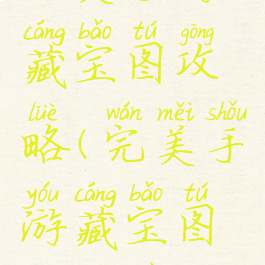 cáng bǎo tú gōng
藏宝图攻
lüè wán měi shǒu
略(完美手
yóu cáng bǎo tú
游藏宝图